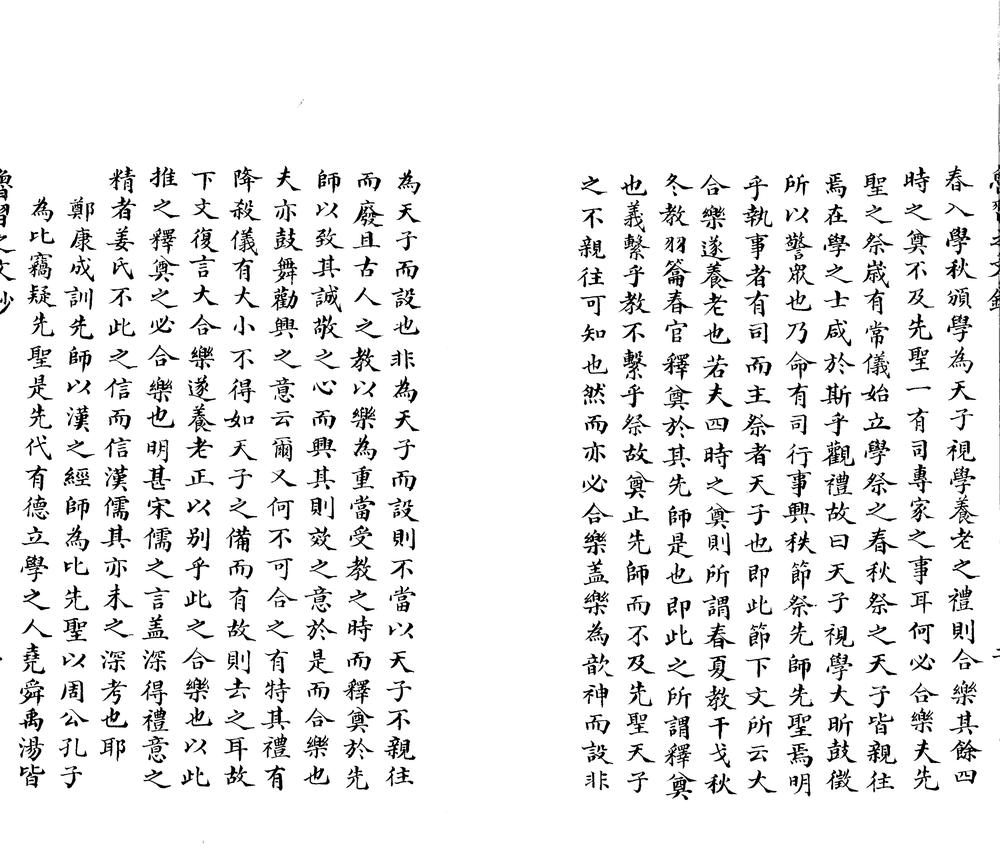 春入學秋頒學為天子視學養老之禮則合樂其餘四
時之奠不及先聖一有司專家之事耳何必合樂夫先
聖之祭嵗有常儀始立學祭之春秋祭之天子皆親往
焉在學之士咸於斯乎觀禮故曰天子視學大昕鼓徵
所以警衆也乃命有司行事興秩節祭先師先聖焉明
乎執事者有司而主祭者天子也即此節下文所云大
合樂遂養老也若夫四時之奠則所謂春夏教干戈秋
冬教羽籥春官釋奠於其先師是也即此之所謂釋奠
也義繫乎教不繫乎祭故奠止先師而不及先聖天子
之不親往可知也然而亦必合樂盖樂為歆神而設非
為天子而設也非為天子而設則不當以天子不親往
而廢且古人之教以樂為重當受教之時而釋奠於先
師以致其誠敬之心而興其則效之意於是而合樂也
夫亦鼓舞勸興之意云爾又何不可合之有特其禮有
降殺儀有大小不得如天子之備而有故則去之耳故
下文復言大合樂遂養老正以别乎此之合樂也以此
推之釋奠之必合樂也明甚宋儒之言盖深得禮意之
精者姜氏不此之信而信漢儒其亦未之深考也耶
鄭康成訓先師以漢之經師為比先聖以周公孔子
為比竊疑先聖是先代有德立學之人堯舜禹湯皆